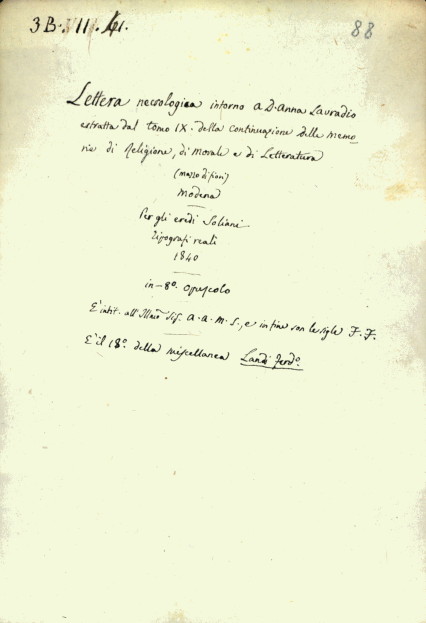 3 B. VII. 41.
88
Lettera necrologica intorno a D. Anna Lauradio
estratta dal tomo IX. della continuazione delle Memo-
rie di Religione, di Morale e di Letteratura
(mazzo di fiori)
Modena
Per gli eredi Soliani
Tipografi reali
1840
in-8º. opuscolo
È intit. all'Illmo Sig. A. A. M. S., e in fine son le sigle F. F.
È il 18º. della miscellanea Landi Ferdº.